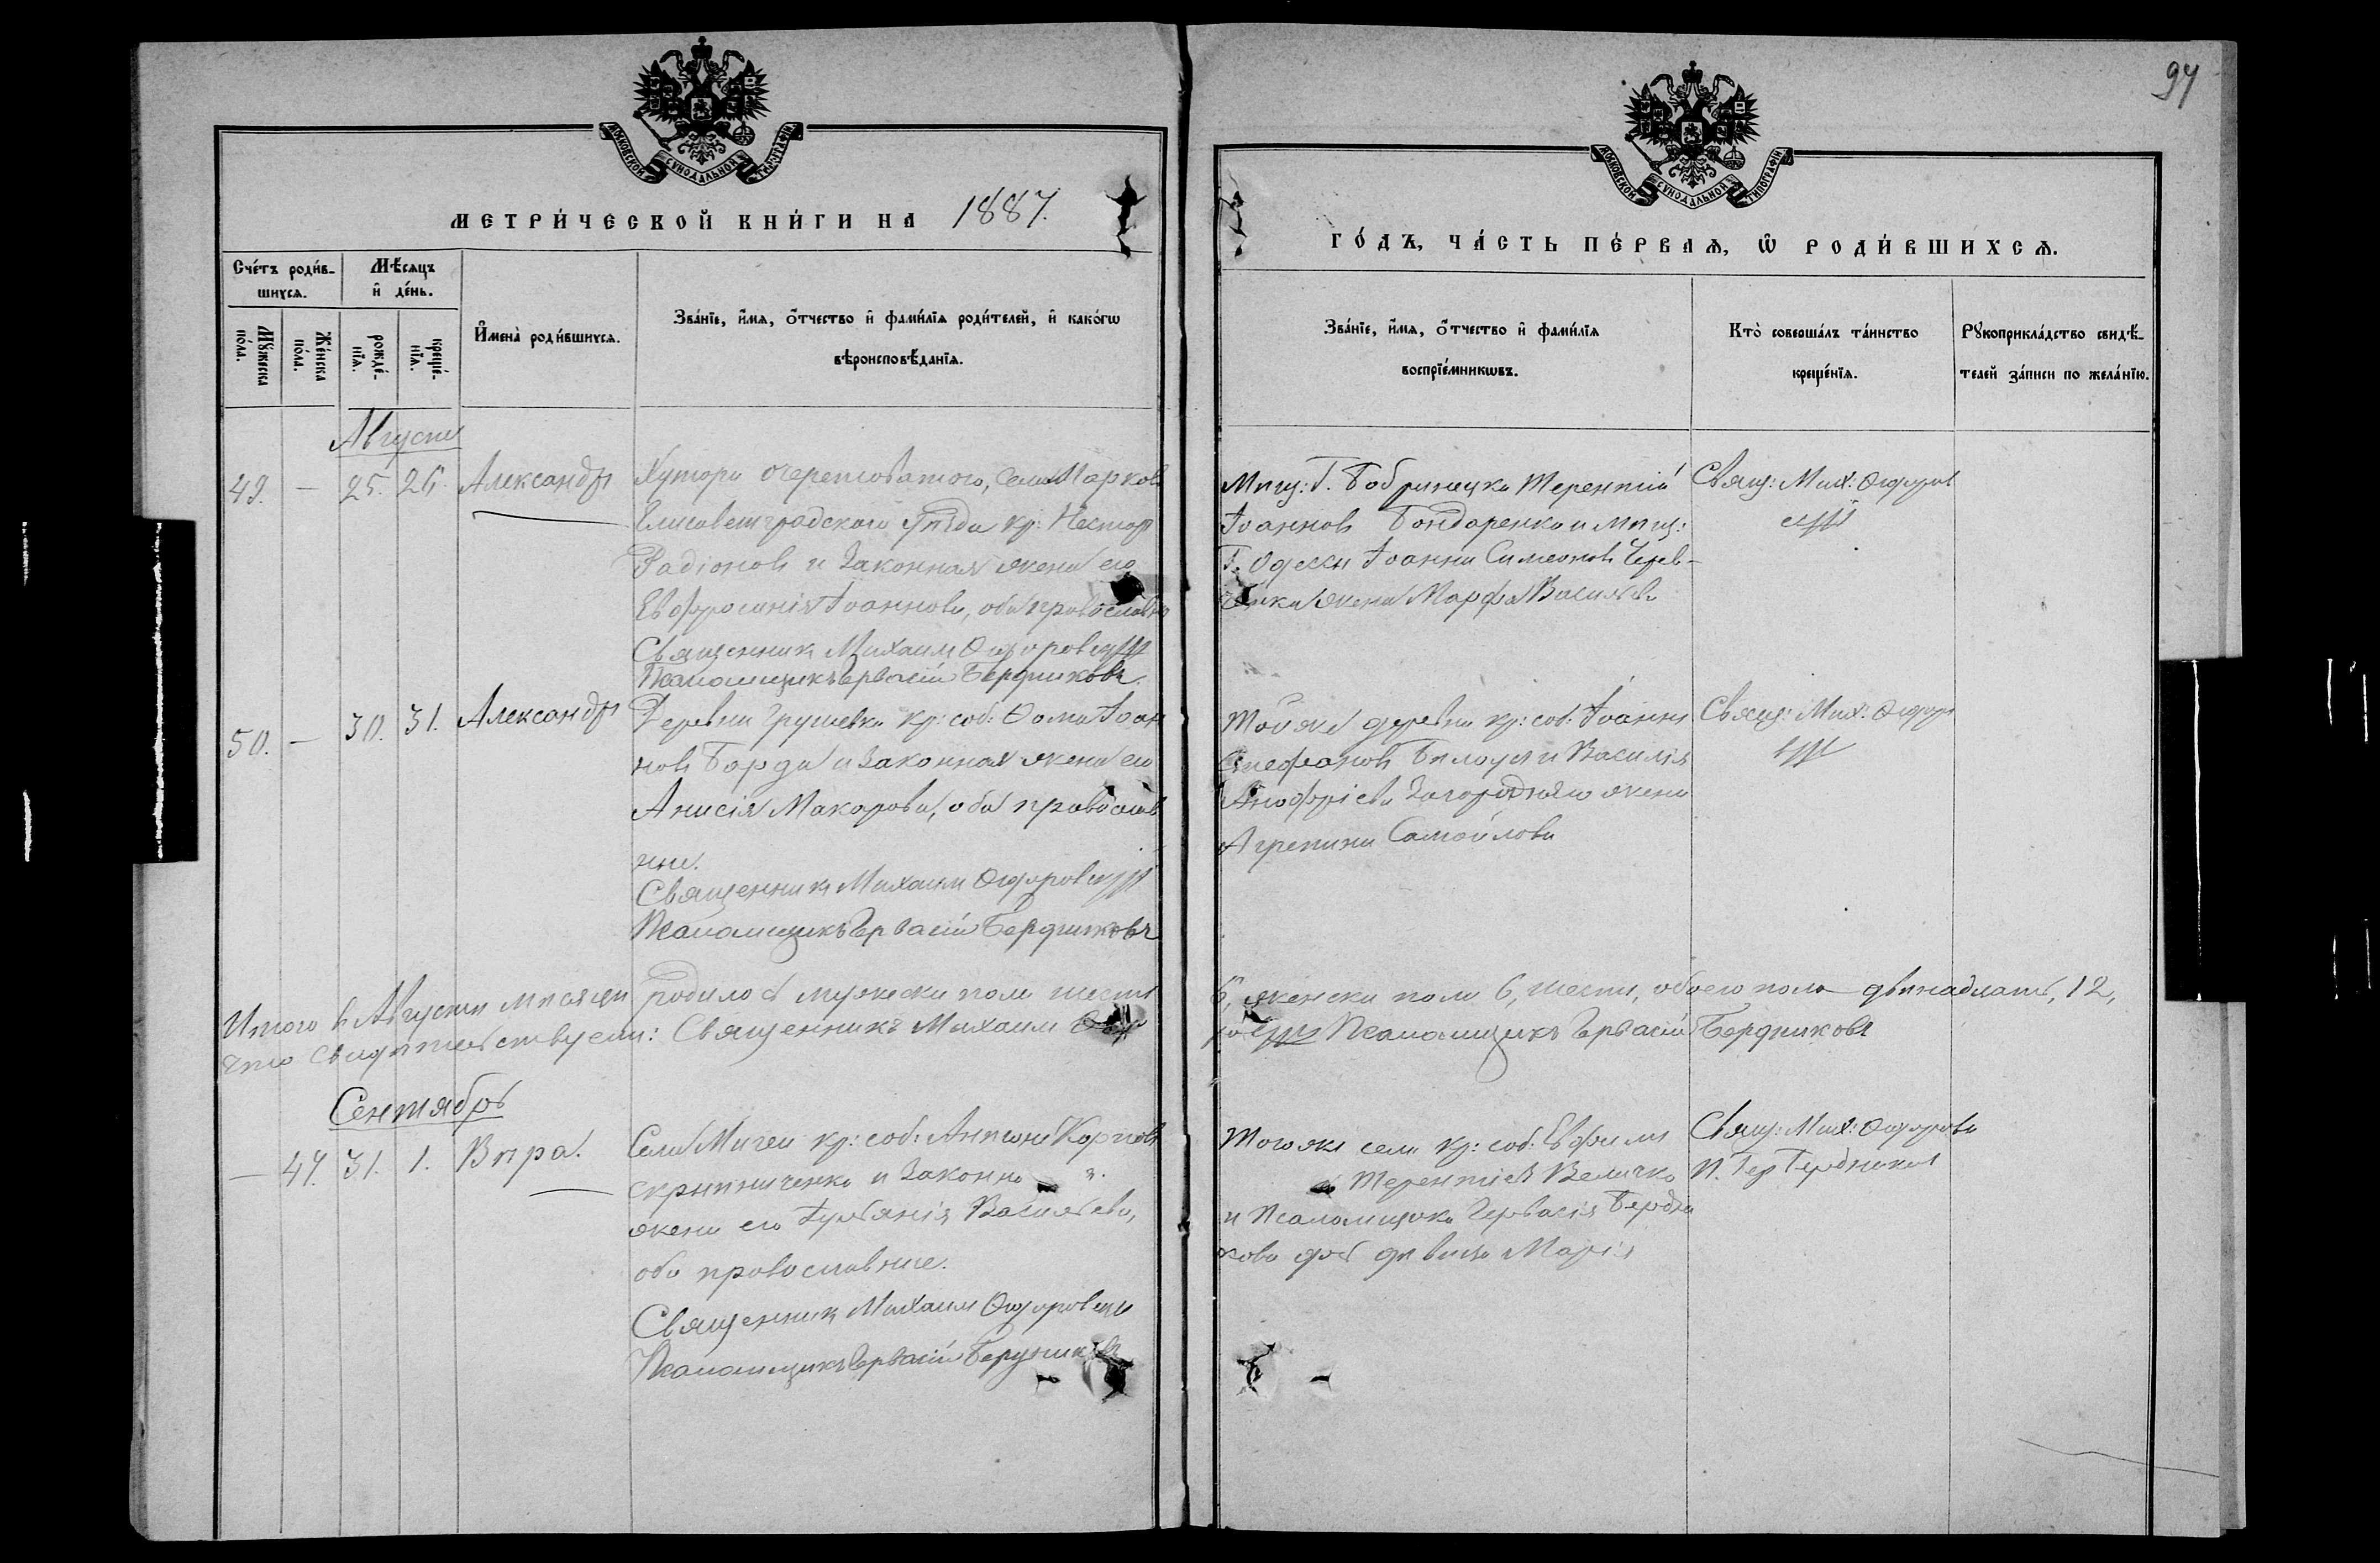 94
МОСКОВСКОЙ СѴНОДАЛЬНОЙ ТИПОГРАФІИ
МОСКОВСКОЙ СѴНОДАЛЬНОЙ ТИПОГРАФІИ
МЕТРИ́ЧЕСКОЙ КНИ́ГИ НА 1887.
ГО́ДЪ, ЧА́СТЬ ПЕ́РВАѦ, Ѡ РОДИ́ВШИХСѦ.
Сче́тъ роди́в-
шихсѧ.
Мꙋжеска по́ла.
Же́нска по́ла.
Мѣ́сѧцъ
и҆ де́нь.
рожде́-нїѧ.
креще́-нїѧ.
И҆мена̀ роди́вшихсѧ.
Зва́нїе, и҆́мѧ, ѻ҆́тчество и҆ фами́лїѧ роди́телей, и҆ како́гѡ
вѣроисповѣ́данїѧ.
Зва́нїе, и҆́мѧ, ѻ҆́тчество и҆ фами́лїѧ
воспрїе́мникѡвъ.
Кто̀ соверша́лъ та́инство
креще́нїѧ.
Рꙋкоприкла́дство свидѣ́-
телей за́писи по жела́нїю.
Августъ
49. — 25. 26. Александръ
Хутора Очеретоватого, села Марков
Елисаветградскаго уѣзда кр: Нестор
Радіоновъ и законная жена его
Евфросинія Іоаннова, оба православн
Священникъ Михаилъ Ѳедоровскій
Псаломщикъ Гервасій Бердниковъ.
Мѣщ: Г. Бобринецка Терентій
Іоанновъ Бондаренко и мѣщ:
Г. Одессы Іоанна Симеонова Черев-
жена Марфа Васильева
Свящ: Мих: Ѳедоров
скій
50. — 30. 31. Александръ
Деревни Грушевки кр: соб: Ѳома Іоан
новъ Борда и законная жена его
Анисія Макарова, оба православ
ные.
Священникъ Михаилъ Ѳедоровскій
Псаломщикъ Гервасій Бердниковъ
Той же деревни кр: соб: Іоаннъ
Стефановъ Билоусъ и Василія
Анофріева Загородняго жена
Агрепина Самойлова
Свящ: Мих: Ѳедоро
вскій
Итого въ Августѣ мѣсяцѣ родилось мужеска пола шесть 6, женска пола 6, шесть, обоего пола двѣнадцать, 12,
что свидѣтельствуемъ: Священникъ Михаилъ Псаломщикъ Гервасій Бердниковъ
Сентябрь
— 44. 31. 1. Вѣра.
Села Мигеи кр: соб: Антоній Карповъ
Скрыпниченко и законна
жена его Іуліанія Васильева,
оба православные.
Священникъ Михаилъ Ѳедоровскій
Псаломщикъ Гервасій Бердниковъ
Того же села кр: соб: Евфимъ
Терентіевъ Величко
и Псаломщика Гервасія Бердни
кова дочь дѣвица Марія
Свящ: Мих: Ѳедоровск
П. Гер Бердниковъ